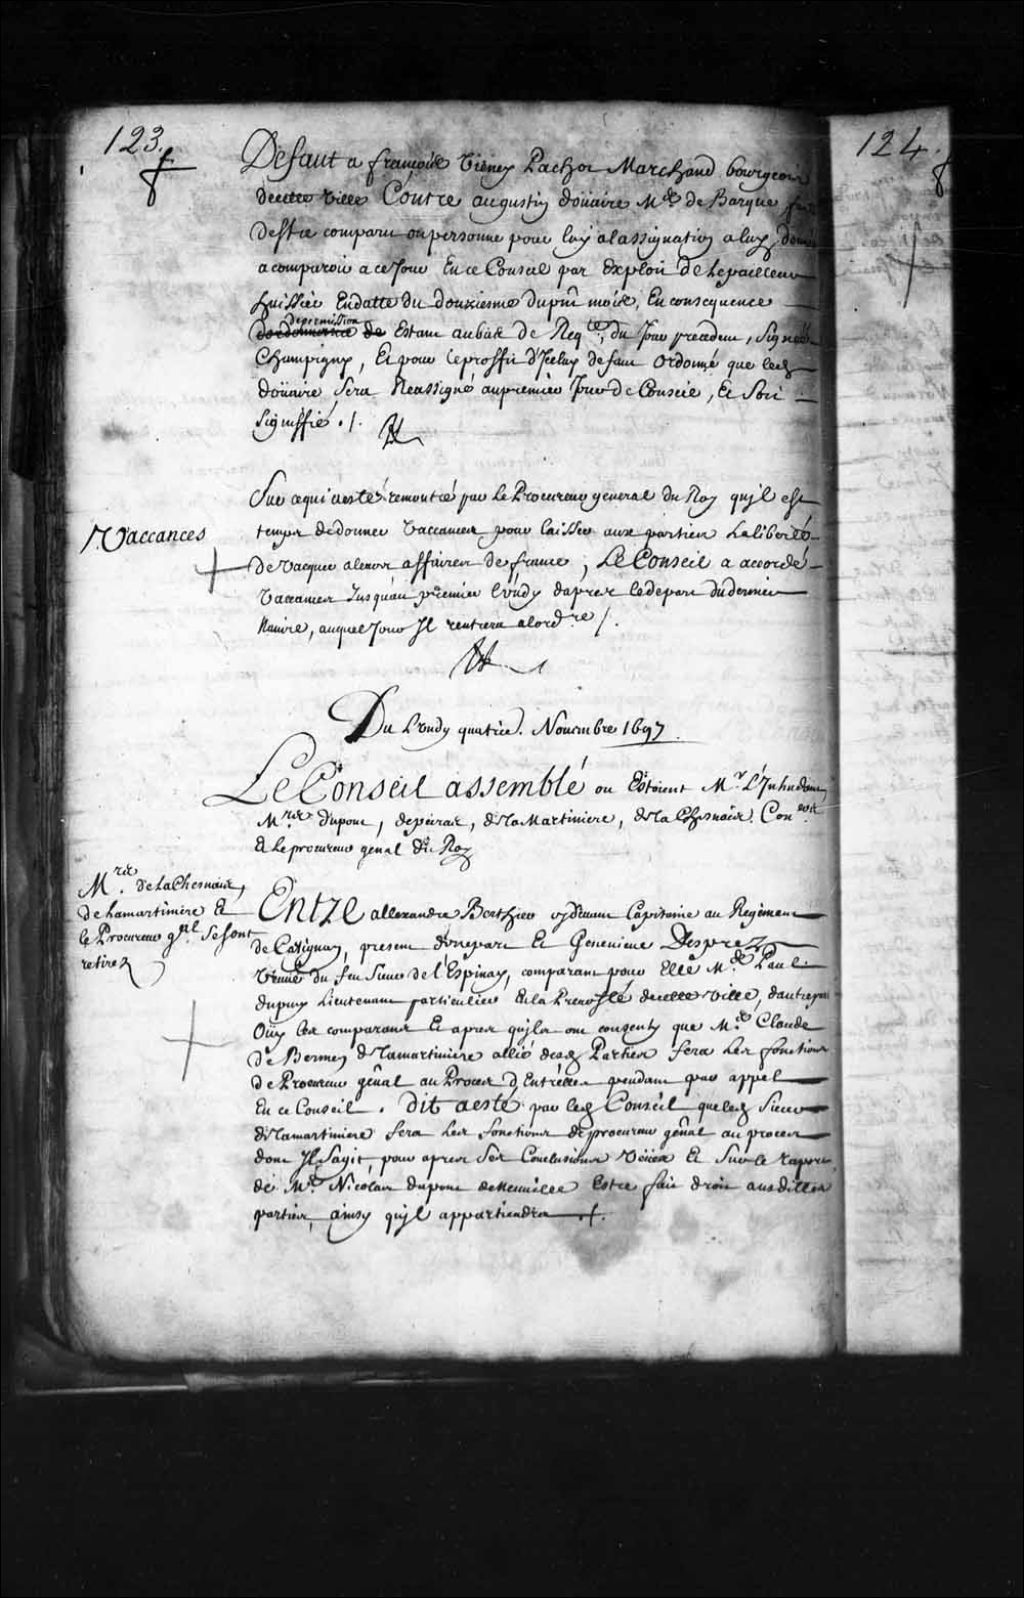 123.
124.
Defaut a françois Viennay Pachot Marchand bourgeois
de cette ville Contre augustin doüaire Me de Barque
destre comparu ou personne pour luy a lassignation a luy donnée
a comparoir a ce Jour En ce Conseil par Exploit de Lepailleur
huissier En datte du douziesme du pnt mois, En consequence
de permission
dordonnance de Estant au bas de Reqte, du Jour precedent, Signée
Champigny, Et pour le proffit d'Jceluy defaut Ordonné que led
doüaire Sera Reassigné au premier Jour de Conseil, Et Soit
Signiffié ./.
Sur ce qui a esté remontré par le Procureur general du Roy qu'jl est
temps de donner Vaccances pour laisser aux parties La liberté
Vaccances
de Vacquer a leurs affaires de france ; Le Conseil a accordé
Vaccances Jusqu'au premier Lúndy d'apres le depart du dernier
Navire, auquel Jour Jl rentrera a lordre /.
Du Lundy quatrie. Nouembre 1697.
Le Conseil assemblé ou Estoient Mr L'Jntendant
Mrs dupont, depeiras, de la Martiniere, de la Chesnaie Coners
Et Le procureur genal du Roy
Mrs de La Chesnaie,
de Lamartiniere Et
le Procureur gnl Se sont
retirez
Entre allexandre Berthier cy deuant Capitaine au Regiment
de Carignan, present d'une part Et Geneuieve Desprez
Veuue du feu Sieur de l'Espinay, comparant pour Elle Me Paul
dupuy Lieutenant particulier En la Preuosté de cette ville, dautre part
Oüy Les comparans Et apres qu'jls ont consenty que Me Claude
de Bermen de Lamartiniere allié desd Parties fera Les fonctions
de Procureur genal au Proces d'Entr'elles pendant par appel
En ce Conseil. Dit a esté par led Conseil que led Sieur
de Lamartiniere fera Les fonctions de procureur genal au proces
dont Jl Sagit, pour apres Ses Conclusions Veües Et Sur le raport
de Me Nicolas dupont de Neuuille Estre fait droit ausdittes
parties, ainsy qu'jl appartiendra ./.